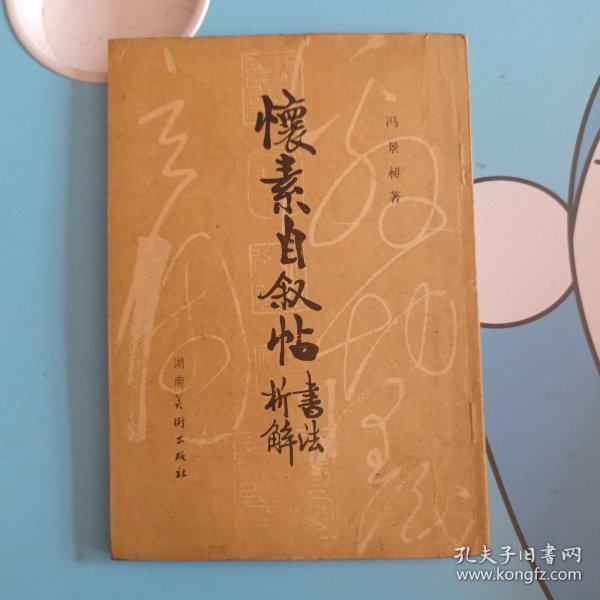 冯景昶著
懷素自叙帖
書法
析解
湖南美術出版社
孔夫子旧书网
www.kongfz.com